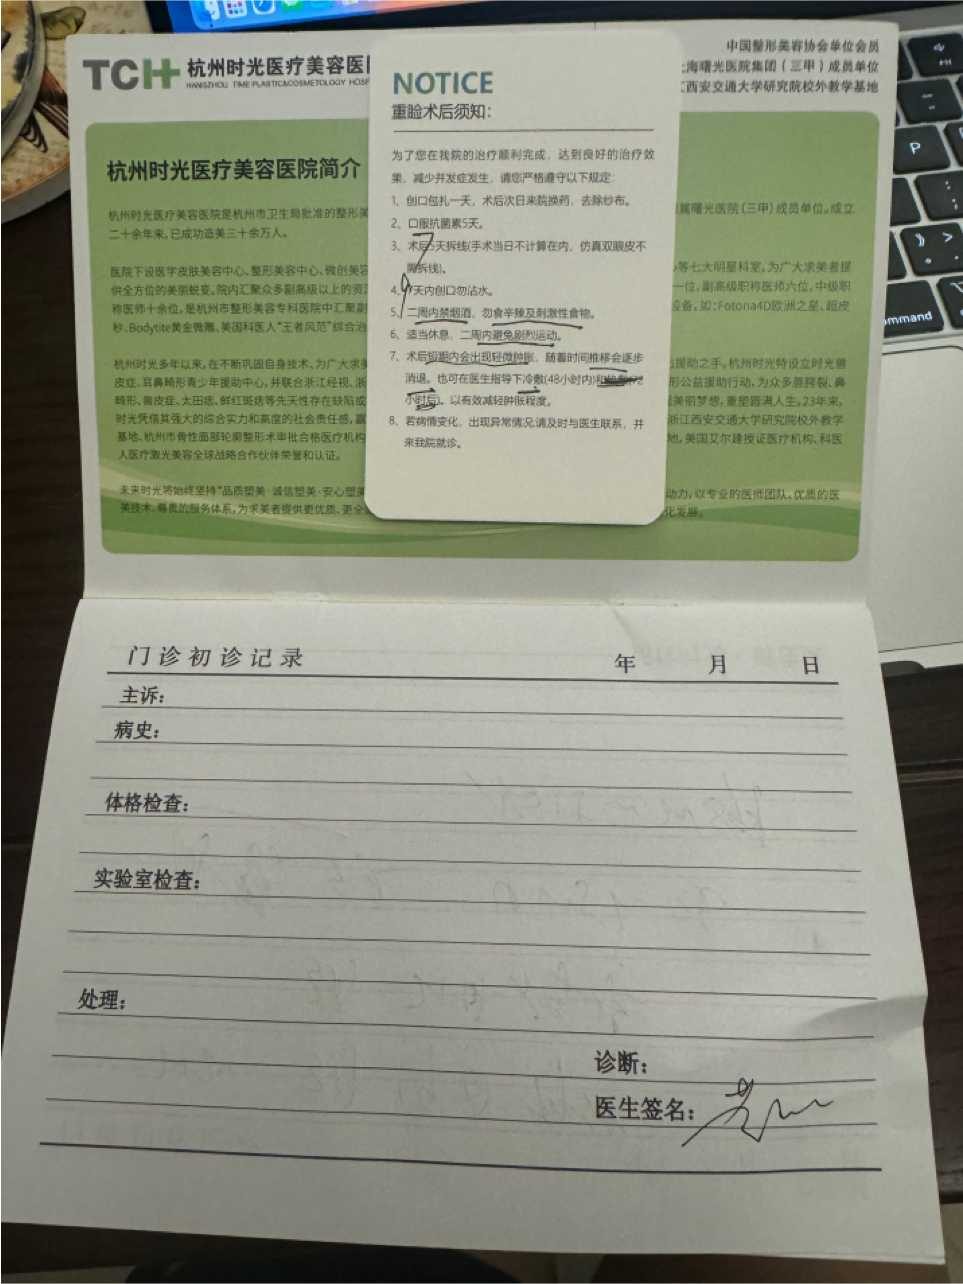 TCH 杭州时光医疗美容医
HANGZHOU TIME PLASTIC&COSMETOLOGY HOSP
中国整形美容协会单位会员
上海曙光医院集团（三甲）成员单位
江西安交通大学研究院校外教学基地
杭州时光医疗美容医院简介
杭州时光医疗美容医院是杭州市卫生局批准的整形美
属曙光医院（三甲）成员单位。成立
二十余年来，已成功造美三十余万人。
医院下设医学皮肤美容中心、整形美容中心、微创美容
等七大明星科室。为广大求美者提
供全方位的美丽蜕变。院内汇聚众多副高级以上的资
一位，副高级职称医师六位，中级职
称医师十余位，是杭州市整形美容专科医院中汇聚副
设备。如：Fotona4D欧洲之星、超皮
秒、Bodytite黄金微雕、美国科医人“王者风范”综合治
杭州时光多年以来，在不断巩固自身技术，为广大求美
援助之手。杭州时光特设立时光兽
皮症、耳鼻畸形青少年援助中心，并联合浙江经视、浙
形公益援助行动，为众多唇腭裂、鼻
畸形、兽皮症、太田痣、鲜红斑痣等先天性存在缺陷或
美丽梦想，重塑圆满人生。23年来，
时光凭借其强大的综合实力和高度的社会责任感，赢
浙江西安交通大学研究院校外教学
基地、杭州市骨性面部轮廓整形术审批合格医疗机构
地，美国艾尔建授证医疗机构、科医
人医疗激光美容全球战略合作伙伴荣誉和认证。
未来时光将始终坚持“品质塑美·诚信塑美·安心塑美
动力，以专业的医师团队、优质的医
美技术、尊贵的服务体系，为求美者提供更优质、更全
化发展。
NOTICE
重睑术后须知：
为了您在我院的治疗顺利完成，达到良好的治疗效
果，减少并发症发生，请您严格遵守以下规定：
1、创口包扎一天，术后次日来院换药，去除纱布。
2、口服抗菌素5天。
3、术后5天拆线(手术当日不计算在内，仿真双眼皮不
需拆线)。
7
4、天内创口勿沾水。
9
5、二周内禁烟酒、勿食辛辣及刺激性食物。
6、适当休息，二周内避免剧烈运动。
7、术后短期内会出现轻微肿胀，随着时间推移会逐步
消退。也可在医生指导下冷敷(48小时内)和热敷(72
小时后)，以有效减轻肿胀程度。
8、若病情变化，出现异常情况，请及时与医生联系，并
来我院就诊。
门诊初诊记录 年 月 日
主诉：
病史：
体格检查：
实验室检查：
处理：
诊断：
医生签名：
P
command